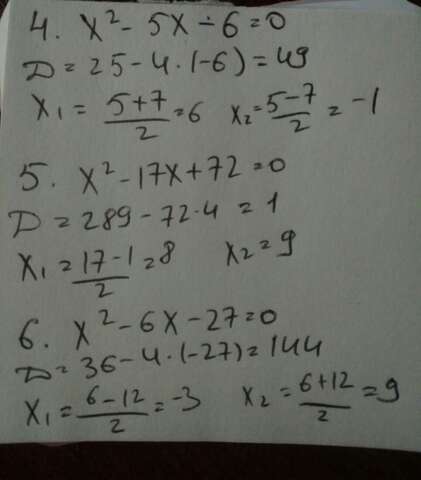 4. x² - 5x - 6 = 0
D = 25 - 4 · (-6) = 49
x₁ = (5+7)/2 = 6 x₂ = (5-7)/2 = -1
5. x² - 17x + 72 = 0
D = 289 - 72·4 = 1
x₁ = (17-1)/2 = 8 x₂ = 9
6. x² - 6x - 27 = 0
D = 36 - 4 · (-27) = 144
x₁ = (6-12)/2 = -3 x₂ = (6+12)/2 = 9